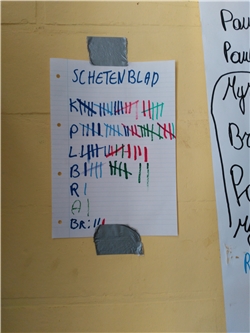 SCHETENBLAD
K
P
L
B
R
A
Br
Pau
Pau
My
Br